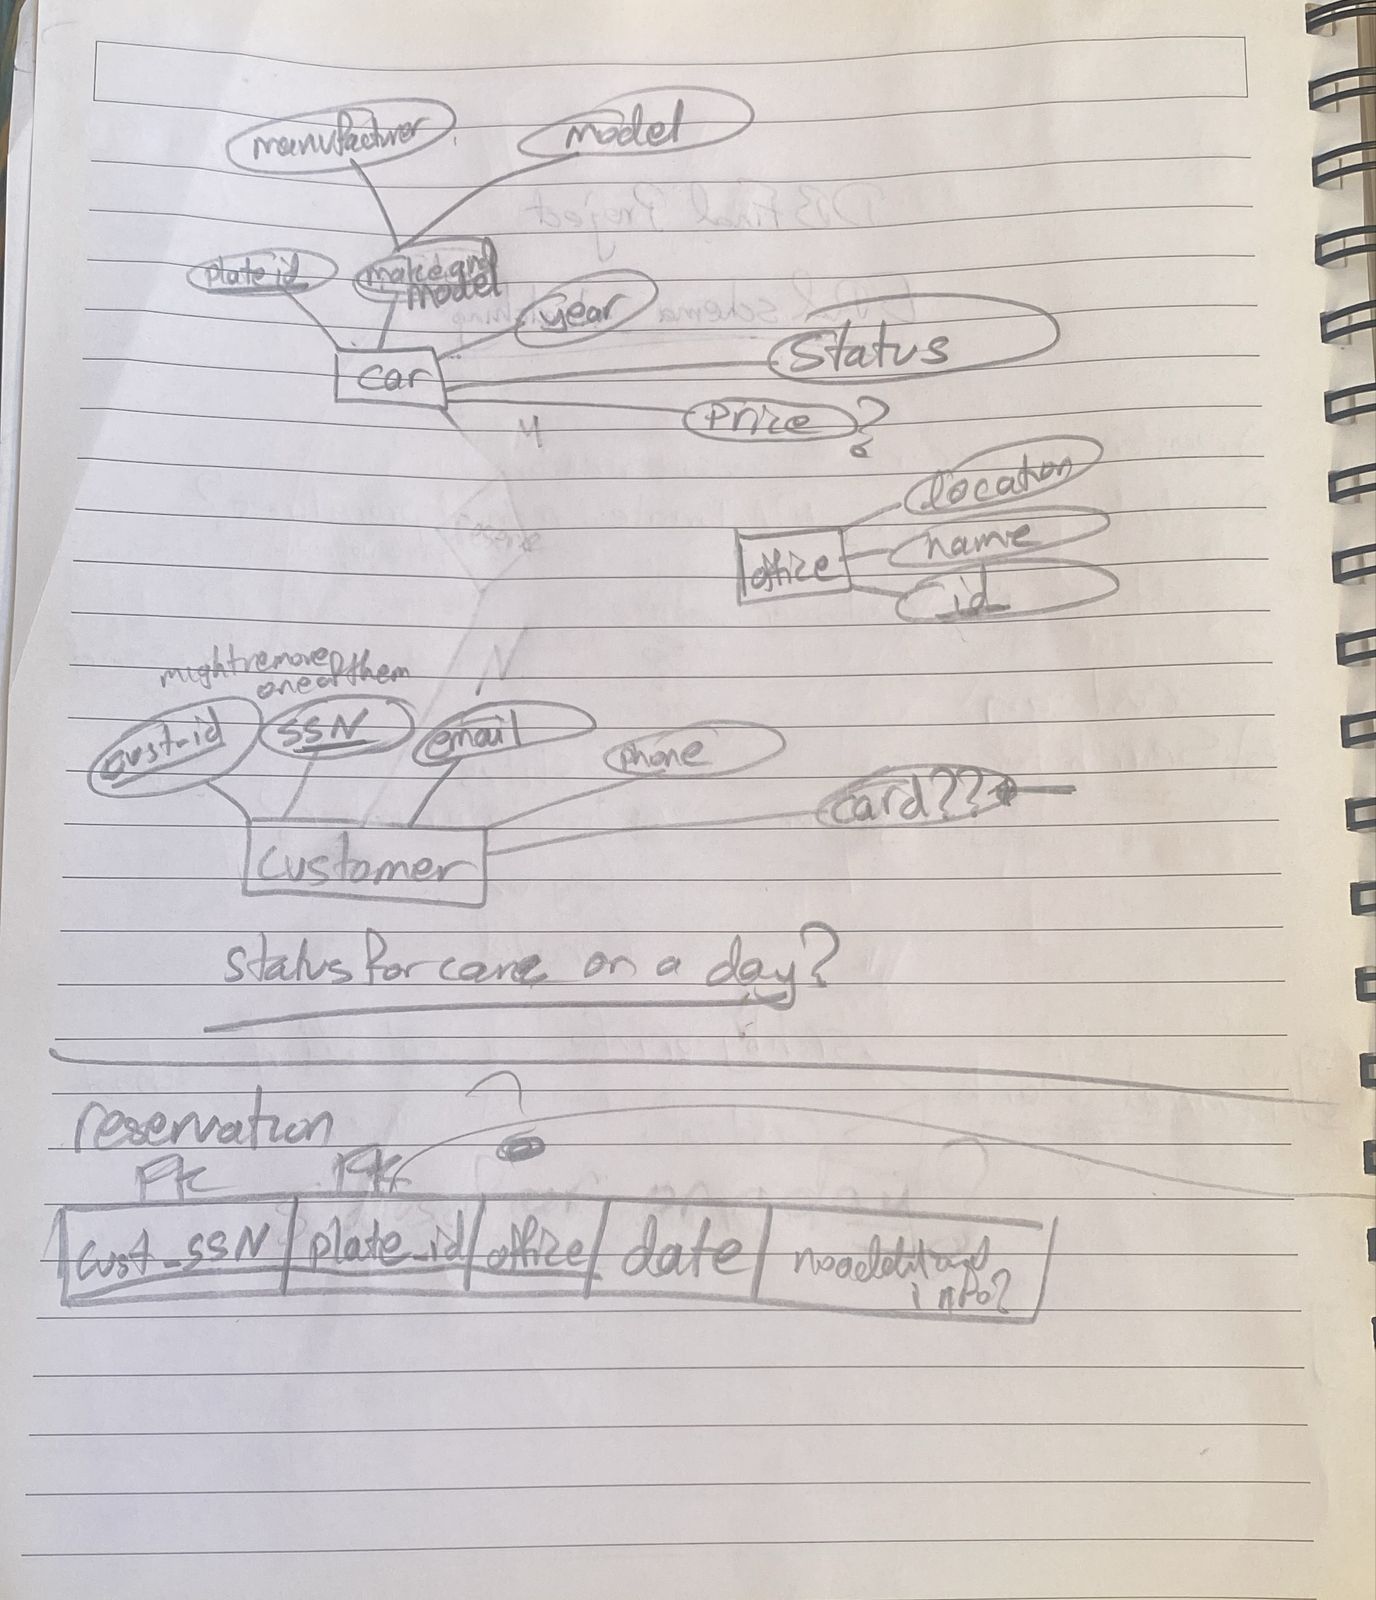 manufacturer model
plate id make and model
year
Status
car
Price ?
M
location
name
office
id
N
might remove
one of them
cust_id SSN email phone
card??
customer
status for care on a day?
reservation
FK FK
cust_SSN plate_id office date no additional
info?